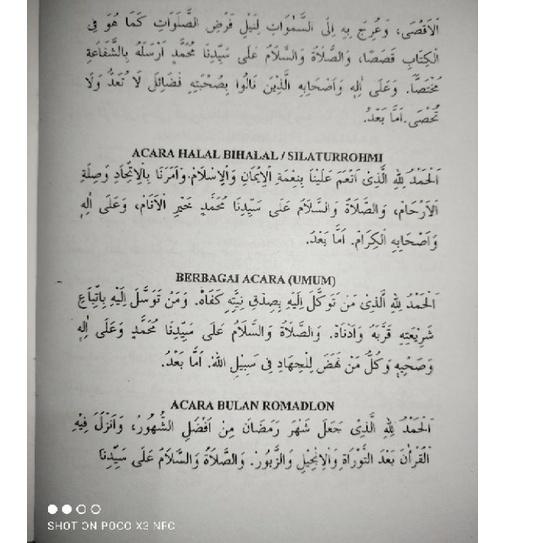 الْاَقْصَى، وَعُرِجَ بِهِ اِلَى السَّمٰوَاتِ لِنَيْلِ فَرْضِ الصَّلَوَاتِ كَمَا هُوَ فِى
الْكِتَابِ قَصَصًا، وَالصَّلَاةُ وَالسَّلَامُ عَلَى سَيِّدِنَا مُحَمَّدٍ اَرْسَلَهُ بِالشَّفَاعَةِ
مُخْتَصًّا. وَعَلَى اٰلِهِ وَاَصْحَابِهِ الَّذِيْنَ نَالُوْا بِصُحْبَتِهِ فَضَائِلَ لَا تُعَدُّ وَلَا
تُحْصَى. اَمَّا بَعْدُ.
ACARA HALAL BIHALAL / SILATURROHMI
اَلْحَمْدُ لِلّٰهِ الَّذِىْ اَنْعَمَ عَلَيْنَا بِنِعْمَةِ الْاِيْمَانِ وَالْاِسْلَامِ. وَاَمَرَنَا بِالْاِتِّحَادِ وَصِلَةِ
الْاَرْحَامِ، وَالصَّلَاةُ وَالسَّلَامُ عَلَى سَيِّدِنَا مُحَمَّدٍ خَيْرِ الْاَنَامِ، وَعَلَى اٰلِهِ
وَاَصْحَابِهِ الْكِرَامِ. اَمَّا بَعْدُ.
BERBAGAI ACARA (UMUM)
اَلْحَمْدُ لِلّٰهِ الَّذِىْ مَنْ تَوَكَّلَ اِلَيْهِ بِصِدْقِ نِيَّتِهِ كَفَاهُ. وَمَنْ تَوَسَّلَ اِلَيْهِ بِاتِّبَاعِ
شَرِيْعَتِهِ قَرَّبَهُ وَاَدْنَاهُ. وَالصَّلَاةُ وَالسَّلَامُ عَلَى سَيِّدِنَا مُحَمَّدٍ وَعَلَى اٰلِهِ
وَصَحْبِهِ وَكُلِّ مَنْ نَهَضَ لِلْجِهَادِ فِى سَبِيْلِ اللّٰهِ. اَمَّا بَعْدُ.
ACARA BULAN ROMADLON
اَلْحَمْدُ لِلّٰهِ الَّذِىْ جَعَلَ شَهْرَ رَمَضَانَ مِنْ اَفْضَلِ الشُّهُوْرِ، وَاَنْزَلَ فِيْهِ
الْقُرْاٰنَ بَعْدَ التَّوْرَاةِ وَالْاِنْجِيْلِ وَالزَّبُوْرِ. وَالصَّلَاةُ وَالسَّلَامُ عَلَى سَيِّدِنَا
SHOT ON POCO X3 NFC